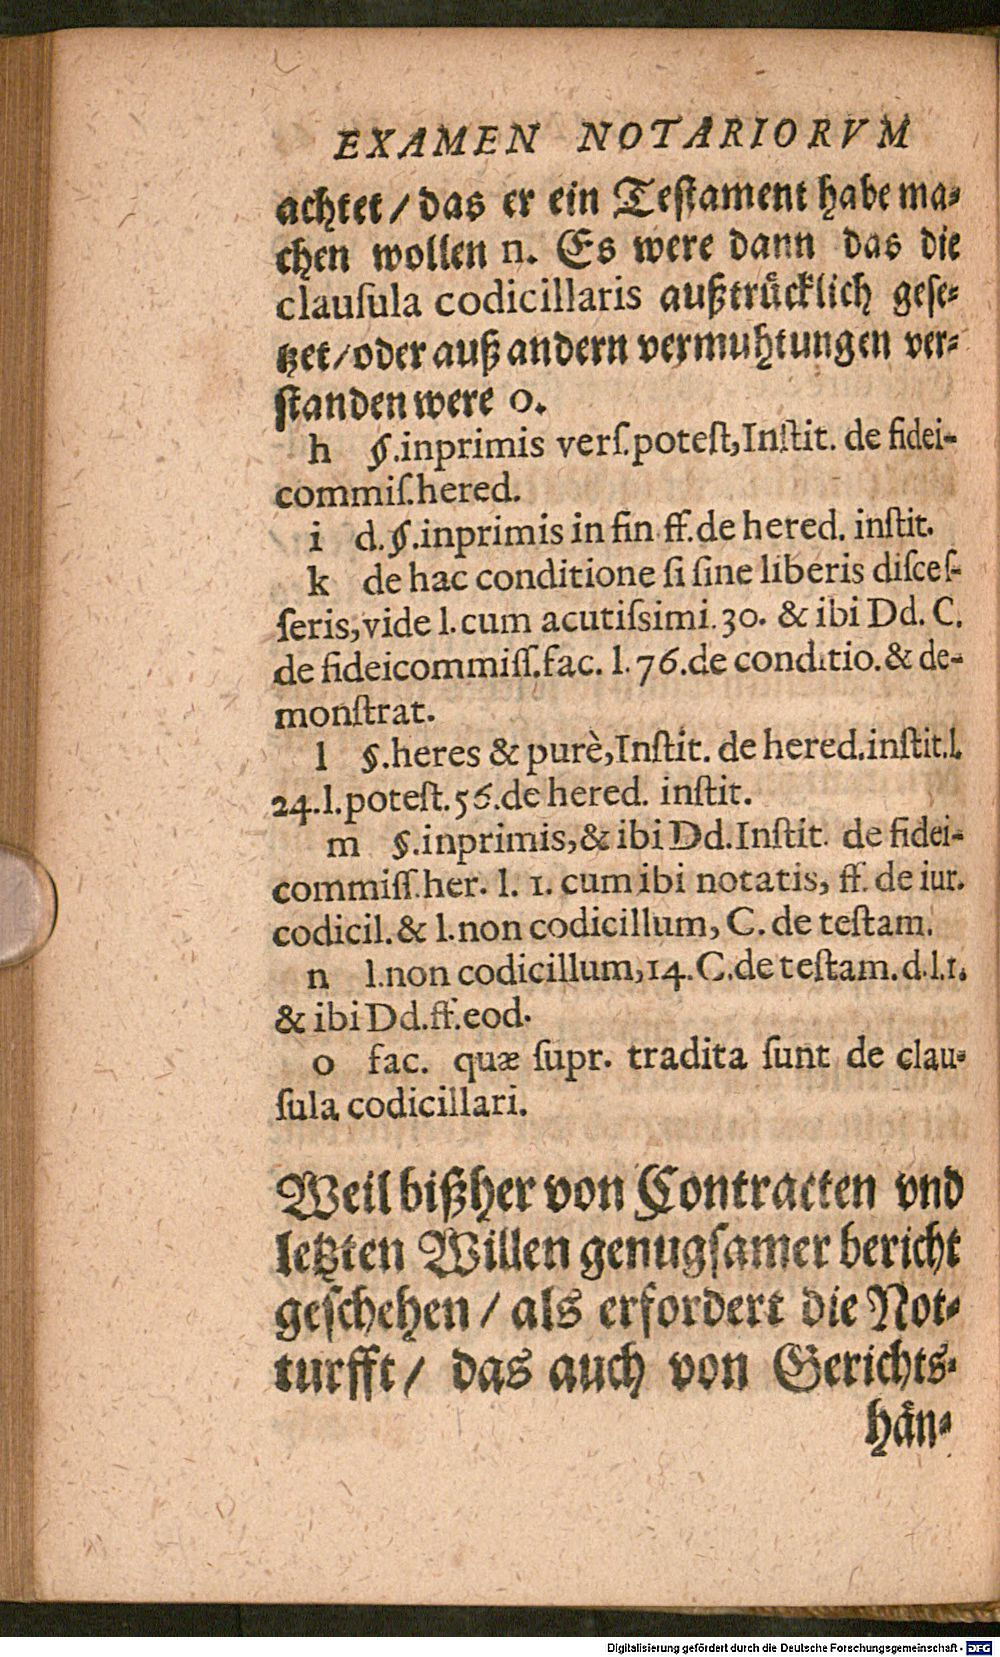 EXAMEN NOTARIORVM
achtet / das er ein Teſtament habe ma⸗
chen wollen n. Es were dann das die
clauſula codicillaris außtrücklich geſe⸗
tzet / oder auß andern vermuhtungen ver⸗
ſtanden were o.
h §.inprimis verſ.poteſt,Inſtit. de fidei-
commiſ.hered.
i d.§.inprimis in fin ff.de hered. inſtit.
k de hac conditione ſi ſine liberis diſceſ-
ſeris,vide l.cum acutiſsimi.30. & ibi Dd. C.
de fideicommiſſ.fac. l.76.de conditio.& de-
monſtrat.
l §.heres & purè,Inſtit. de hered.inſtit.l.
24.l.poteſt.56.de hered. inſtit.
m §.inprimis,& ibi Dd.Inſtit. de fidei-
commiſſ.her. l. 1. cum ibi notatis, ff. de iur.
codicil.& l.non codicillum, C. de teſtam.
n l.non codicillum,14.C.de teſtam.d.l.1.
& ibi Dd.ff.eod.
o fac. quæ ſupr. tradita ſunt de clau-
ſula codicillari.
Weil bißher von Contracten vnd
letzten Willen genugſamer bericht
geſchehen / als erfordert die Not⸗
turfft / das auch von Gerichts⸗
hän⸗
Digitalisierung gefördert durch die Deutsche Forschungsgemeinschaft - DFG